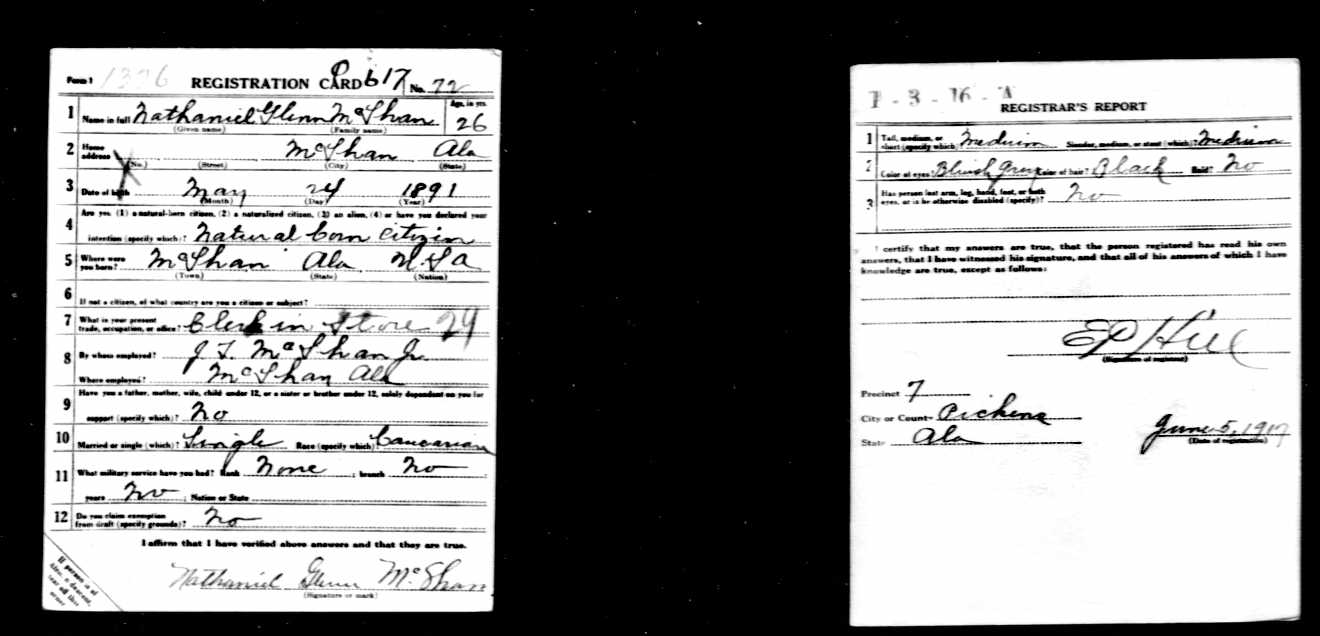 Form 1 1326 REGISTRATION CARD No. 72
1 Name in full Nathaniel Glenn McShan Age, in yrs. 26
(Given name) (Family name)
2 Home address McShan Ala
(No.) (Street) (City) (State)
3 Date of birth May 24 1891
(Month) (Day) (Year)
4 Are you (1) a natural-born citizen, (2) a naturalized citizen, (3) an alien, (4) or have you declared your
intention (specify which)? Natural born citizin
5 Where were you born? McShan Ala U S A
(Town) (State) (Nation)
6 If not a citizen, of what country are you a citizen or subject?
7 What is your present trade, occupation, or office? Clerk in Store 29
8 By whom employed? J T. McShan Jr.
Where employed? McShan Ala
9 Have you a father, mother, wife, child under 12, or a sister or brother under 12, solely dependent on you for
support (specify which)? No
10 Married or single (which)? Single Race (specify which)? Caucasian
11 What military service have you had? Rank None ; branch No
years No ; Nation or State
12 Do you claim exemption from draft (specify grounds)? No
I affirm that I have verified above answers and that they are true.
Nathaniel Glenn McShan
(Signature or mark)
If person is of
African descent,
tear off this
corner
REGISTRAR'S REPORT
1 Tall, medium, or short (specify which)? Medium Slender, medium, or stout (which)? Medium
2 Color of eyes? Bluish Gray Color of hair? Black Bald? No
3 Has person lost arm, leg, hand, foot, or both eyes, or is he otherwise disabled (specify)? No
I certify that my answers are true, that the person registered has read his own
answers, that I have witnessed his signature, and that all of his answers of which I have
knowledge are true, except as follows:
E P Hill
(Signature of registrar)
Precinct 7
City or County Pickens
State Ala
June 5, 1917
(Date of registration)